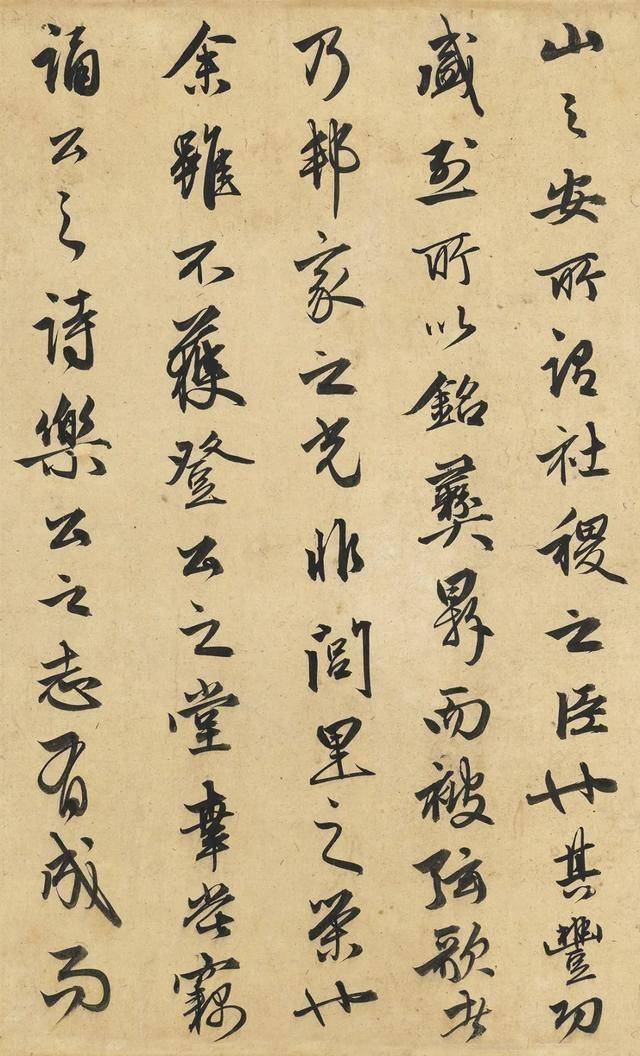 山之安所謂社稷之臣也其豐功
盛烈所以銘彝鼎而被弦歌者
乃邦家之光非閭里之榮也
余雖不獲登公之堂幸嘗竊
誦公之詩樂公之志有成而